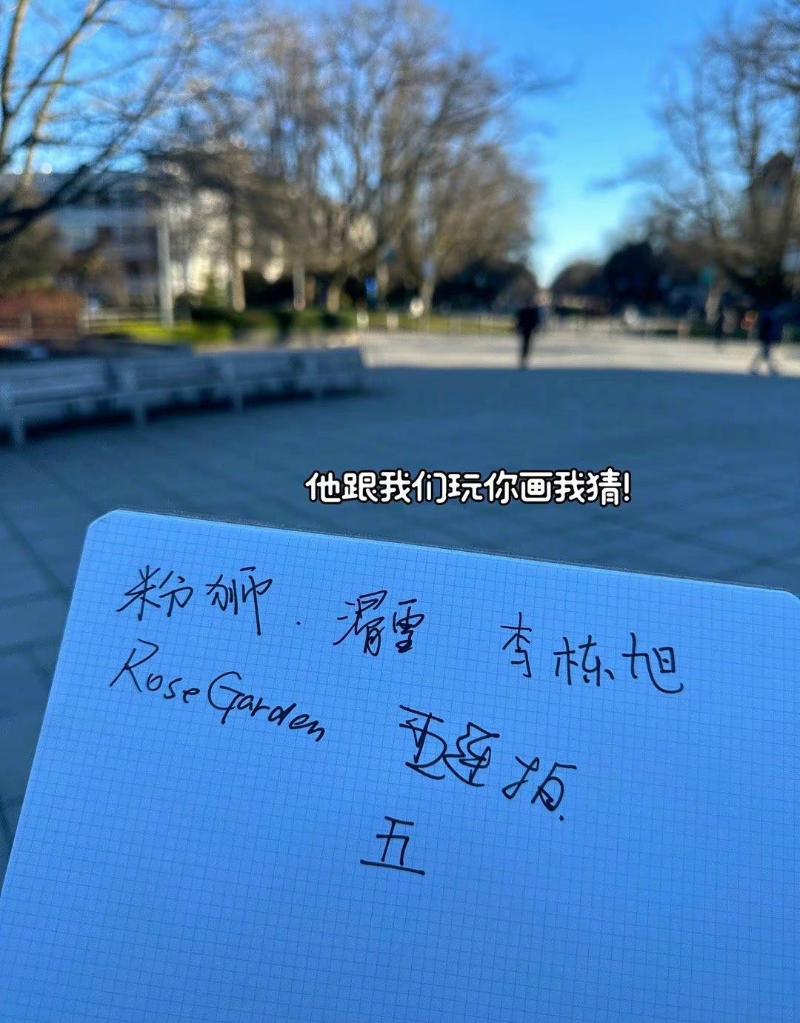 他跟我们玩你画我猜!
粉狮. 滑雪 李栋旭
Rose Garden 连拍
五